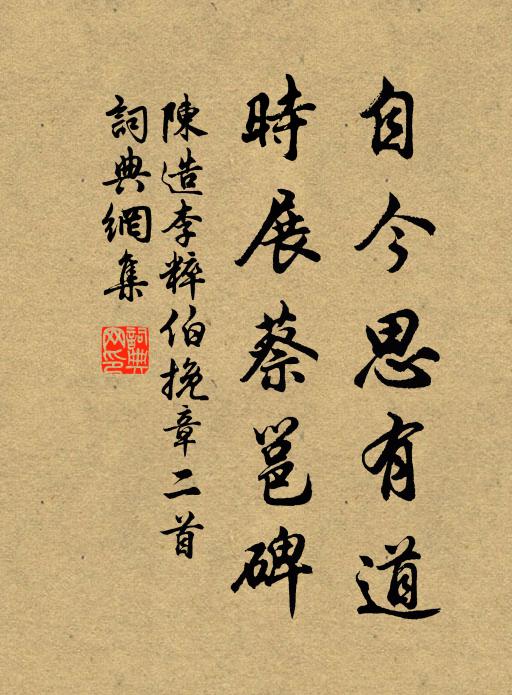 自今思有道
時展蔡邕碑
陳造李粹伯挽章二首
詞典網集
詞典
网印